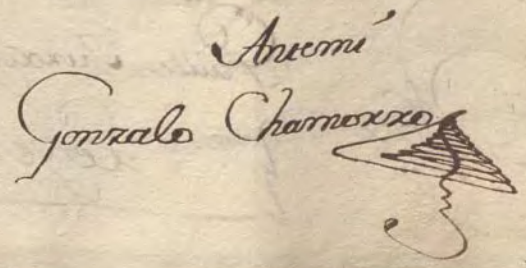 Antemí
Gonzalo Chamorro